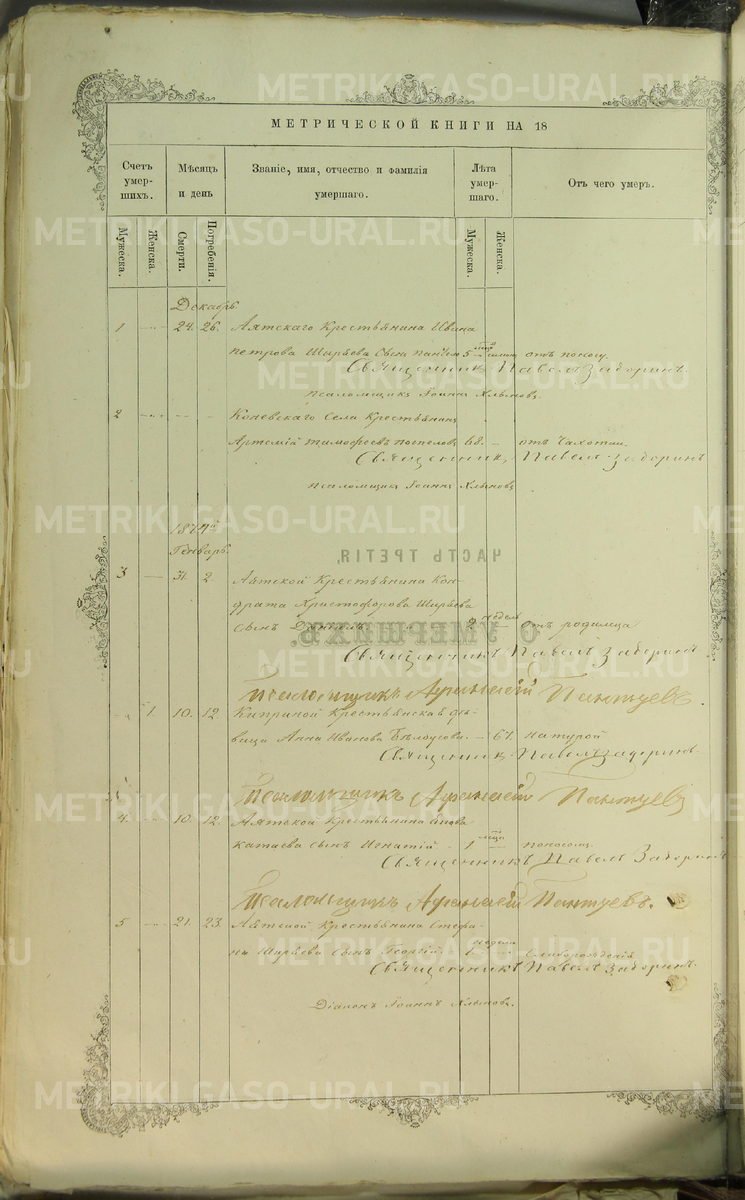 METRIKI.GASO-URAL.RU
МЕТРИЧЕСКОЙ КНИГИ НА 18
Счетъ умер-шихъ.
Мѣсяцъ и день
Званіе, имя, отчество и фамилія умершаго.
Лѣта умер-шаго.
Отъ чего умеръ.
Мужеска.
Женска.
Смерти.
Погребенія.
Мужеска.
Женска.
Декабрь
1 24. 26. Аятскаго Крестьянина Ивана
петрова Ширяева Сынъ 5 отъ поносу.
Священникъ Павелъ Задоринъ.
псаломщикъ Іоаннъ Хлыновъ.
2 Коневскаго Села Крестьянинъ
Артемій тимофеевъ поспеловъ 68. отъ Чахотки.
Священникъ Павелъ Задоринъ
псаломщикъ Іоаннъ Хлыновъ
Январь.
ЧАСТЬ ТРЕТІЯ,
3 31. 2 Аятской Крестьянина Кон-
драта Христофорова Ширяева
недель
сынъ 2 отъ родимца
О УМЕРШИХЪ.
Священникъ Павелъ Задоринъ
Псаломщикъ Афанасій Пантуевъ.
1. 10. 12. Крестьянская дѣ-
вица Анна Иванова Бѣлоусова. 67. натурой
Священникъ Павелъ Задоринъ
Псаломщикъ Афанасій Пантуевъ
4. 10. 12. Аятской Крестьянина
Катаева сынъ Игнатій 1 поносомъ.
Священникъ Павелъ Задоринъ
Псаломщикъ Афанасій Пантуевъ.
5 21. 23. Аятской Крестьянина Стефа-
неделя
на Ширяева сынъ Георгій. 1
Священникъ Павелъ Задоринъ.
Діаконъ Іоаннъ Хлыновъ.